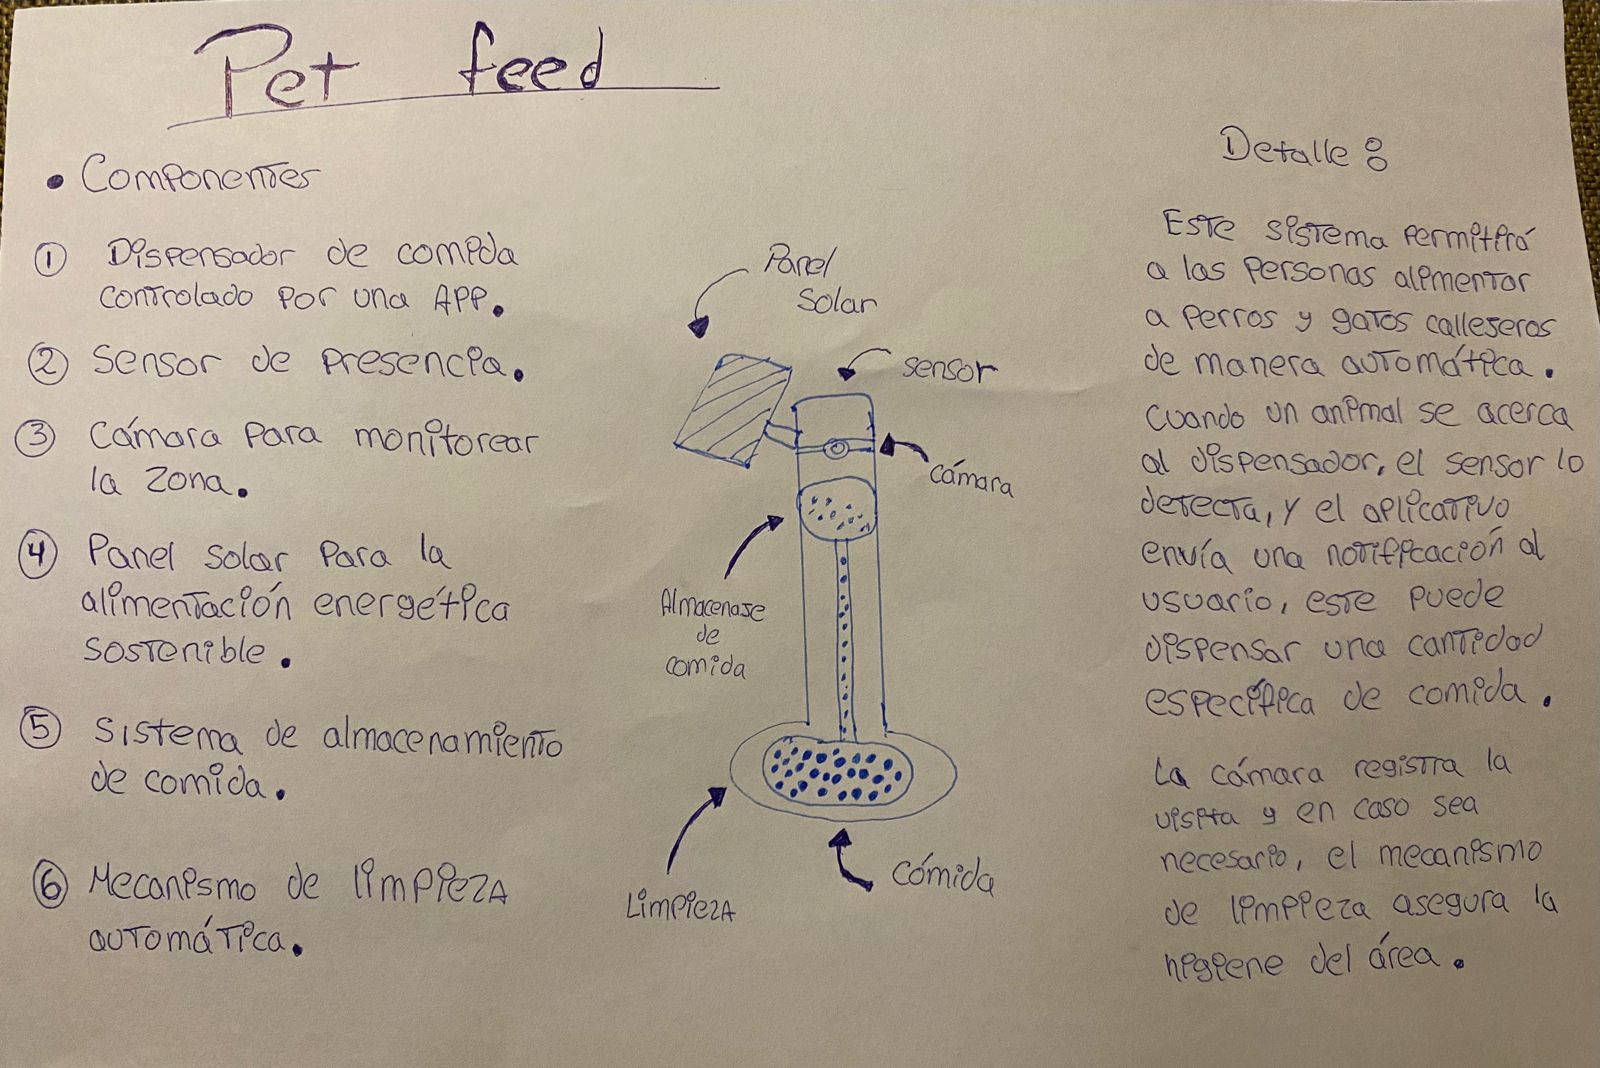 Pet feed
• Componentes
① Dispensador de comida
controlado por una APP.
② Sensor de presencia.
③ Cámara para monitorear
la zona.
④ Panel solar para la
alimentación energética
sostenible.
⑤ Sistema de almacenamiento
de comida.
⑥ Mecanismo de limpieza
automática.
Panel
solar
sensor
cámara
Almacenase
de
comida
Limpieza
cómida
Detalle:
Este sistema permitirá
a las personas alimentar
a perros y gatos callejeros
de manera automática.
Cuando un animal se acerca
al dispensador, el sensor lo
detecta, y el aplicativo
envía una notificación al
usuario, este puede
dispensar una cantidad
específica de comida.
La cámara registra la
visita y en caso sea
necesario, el mecanismo
de limpieza asegura la
higiene del área.